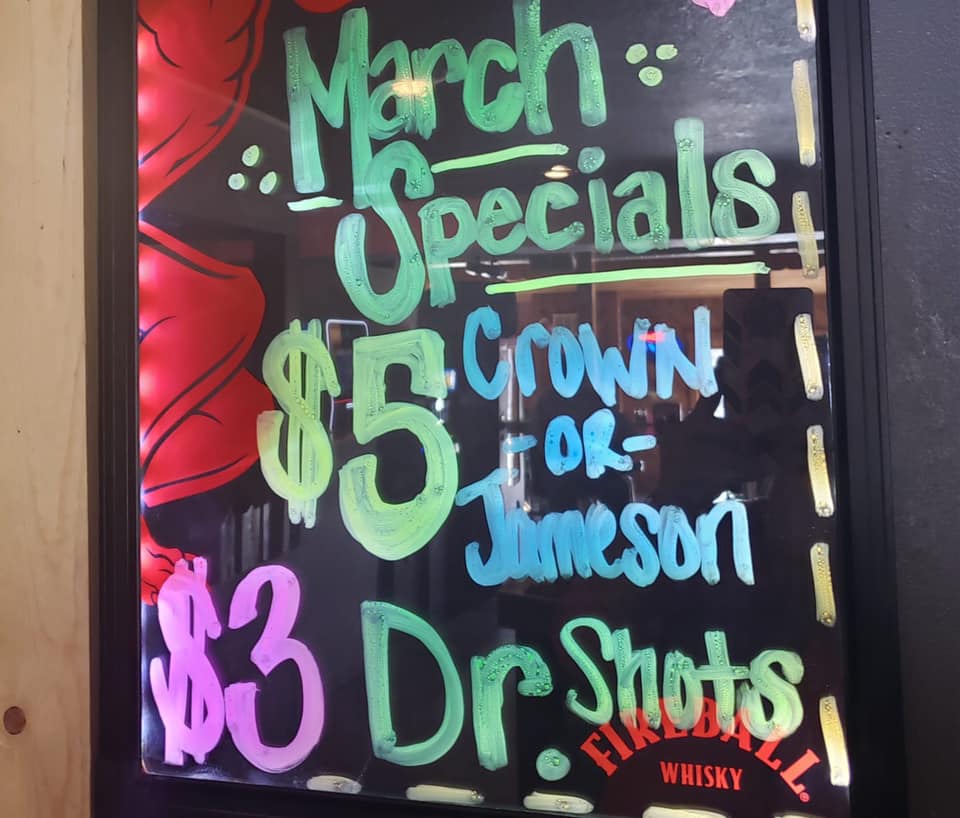 March
Specials
$5 Crown
-OR-
Jameson
$3 Dr. Shots
FIREBALL
WHISKY